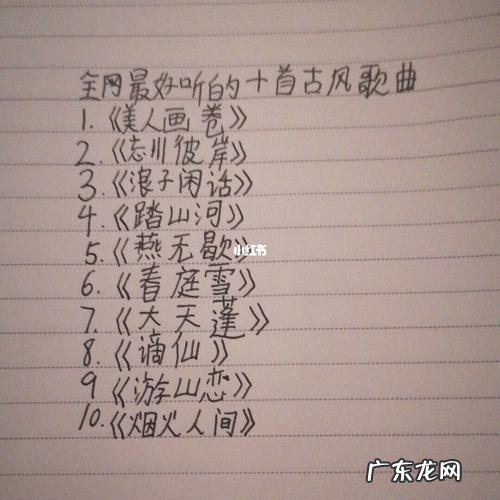 全网最好听的十首古风歌曲
1.《美人画卷》
2.《忘川彼岸》
3.《浪子闲话》
4.《踏山河》
5.《燕无歇》
小红书
6《春庭雪》
7.《大天蓬》
8.《谪仙》
9《游山恋》
10.《烟火人间》
广东龙网